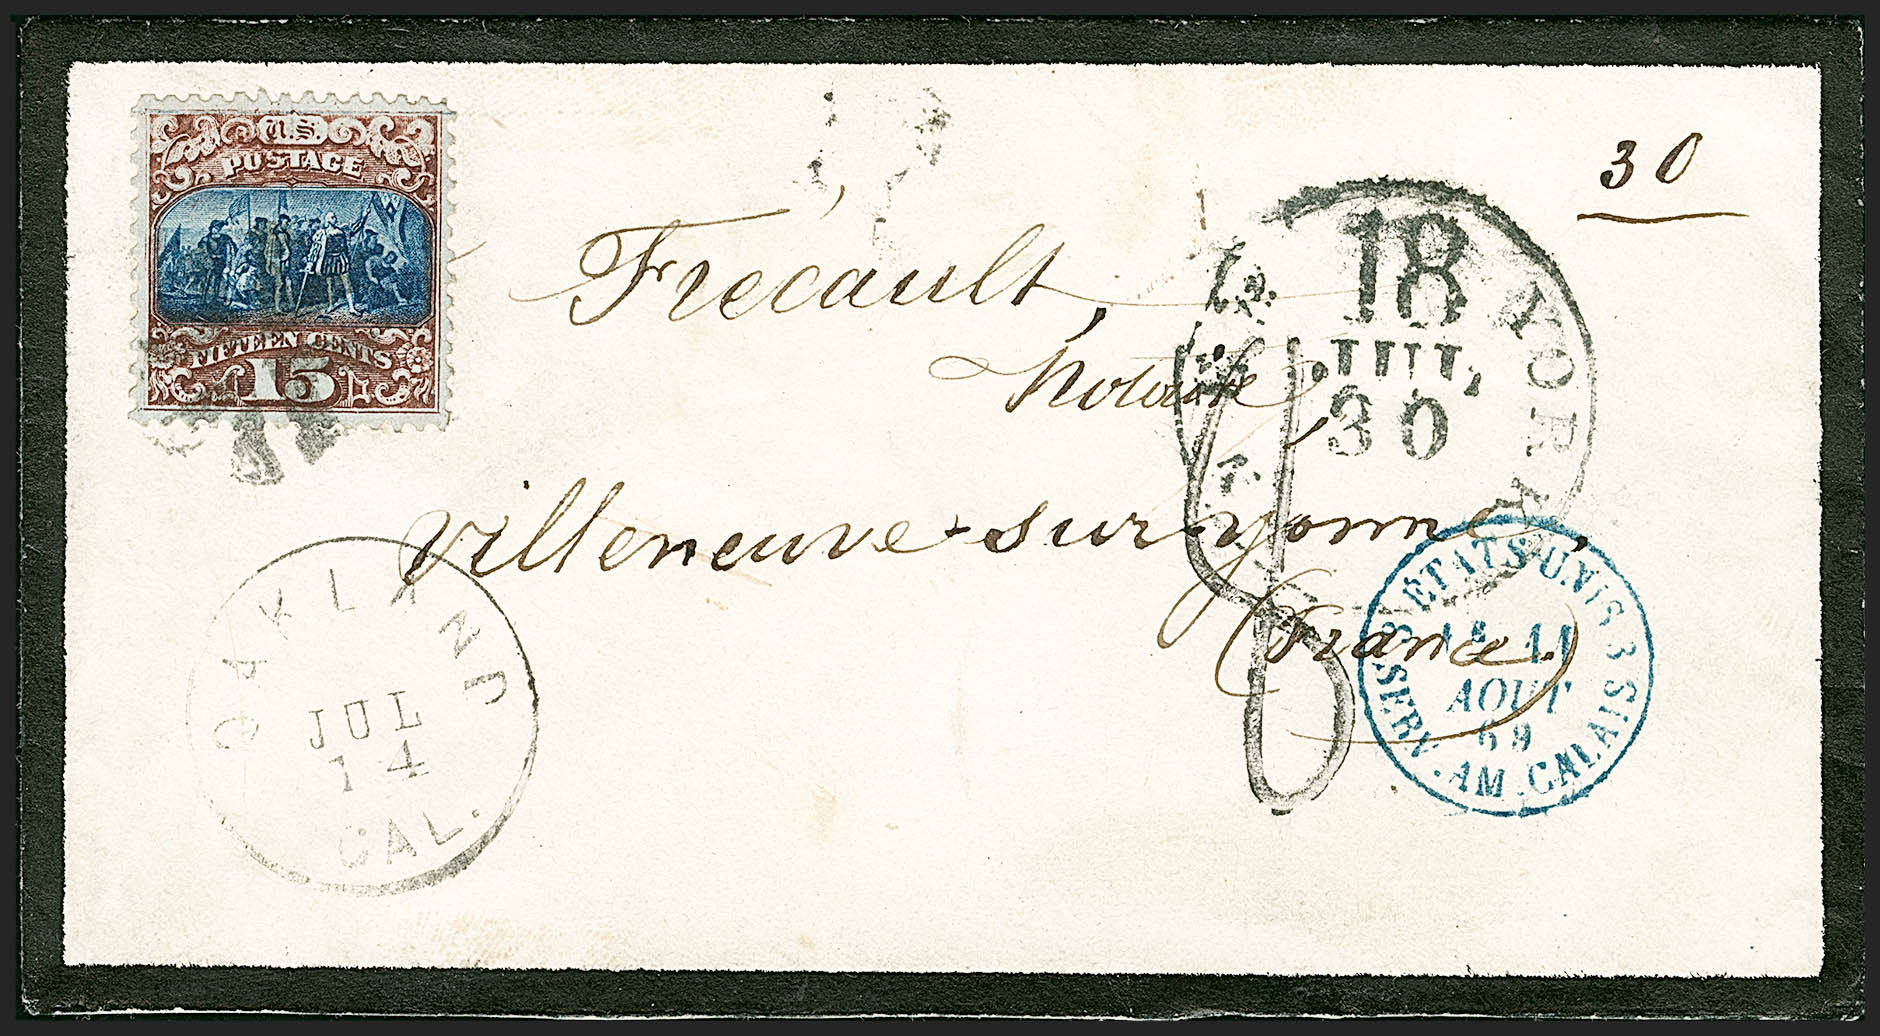 U.S.
POSTAGE
FIFTEEN CENTS
15
30
Frécault,
Notaire
Villeneuve-sur-yonne,
(France.)
18
JUL,
30
YORK
8
OAKLAND
JUL
14
CAL.
ETATS-UNIS
11
AOUT
69
SERV. AM. CALAIS